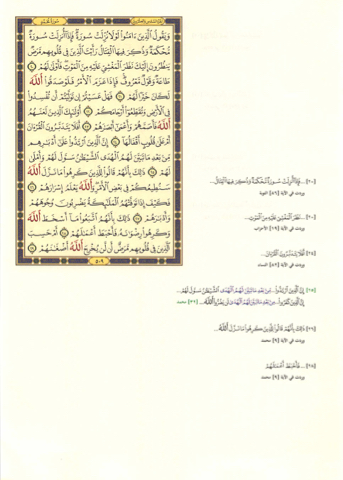 سورة محمد
الجزء السادس والعشرون
وَيَقُولُ ٱلَّذِينَ ءَامَنُوا۟ لَوْلَا نُزِّلَتْ سُورَةٌ فَإِذَآ أُنزِلَتْ سُورَةٌ
مُّحْكَمَةٌ وَذُكِرَ فِيهَا ٱلْقِتَالُ رَأَيْتَ ٱلَّذِينَ فِى قُلُوبِهِم مَّرَضٌ
يَنظُرُونَ إِلَيْكَ نَظَرَ ٱلْمَغْشِىِّ عَلَيْهِ مِنَ ٱلْمَوْتِ فَأَوْلَىٰ لَهُمْ ٢٠
طَاعَةٌ وَقَوْلٌ مَّعْرُوفٌ فَإِذَا عَزَمَ ٱلْأَمْرُ فَلَوْ صَدَقُوا۟ ٱللَّهَ
لَكَانَ خَيْرًا لَّهُمْ ٢١ فَهَلْ عَسَيْتُمْ إِن تَوَلَّيْتُمْ أَن تُفْسِدُوا۟
فِى ٱلْأَرْضِ وَتُقَطِّعُوٓا۟ أَرْحَامَكُمْ ٢٢ أُو۟لَٰٓئِكَ ٱلَّذِينَ لَعَنَهُمُ
ٱللَّهُ فَأَصَمَّهُمْ وَأَعْمَىٰٓ أَبْصَٰرَهُمْ ٢٣ أَفَلَا يَتَدَبَّرُونَ ٱلْقُرْءَانَ
أَمْ عَلَىٰ قُلُوبٍ أَقْفَالُهَآ ٢٤ إِنَّ ٱلَّذِينَ ٱرْتَدُّوا۟ عَلَىٰٓ أَدْبَٰرِهِم
مِّنۢ بَعْدِ مَا تَبَيَّنَ لَهُمُ ٱلْهُدَى ٱلشَّيْطَٰنُ سَوَّلَ لَهُمْ وَأَمْلَىٰ
لَهُمْ ٢٥ ذَٰلِكَ بِأَنَّهُمْ قَالُوا۟ لِلَّذِينَ كَرِهُوا۟ مَا نَزَّلَ ٱللَّهُ
سَنُطِيعُكُمْ فِى بَعْضِ ٱلْأَمْرِ وَٱللَّهُ يَعْلَمُ إِسْرَارَهُمْ ٢٦
فَكَيْفَ إِذَا تَوَفَّتْهُمُ ٱلْمَلَٰٓئِكَةُ يَضْرِبُونَ وُجُوهَهُمْ
وَأَدْبَٰرَهُمْ ٢٧ ذَٰلِكَ بِأَنَّهُمُ ٱتَّبَعُوا۟ مَآ أَسْخَطَ ٱللَّهَ
وَكَرِهُوا۟ رِضْوَٰنَهُۥ فَأَحْبَطَ أَعْمَٰلَهُمْ ٢٨ أَمْ حَسِبَ
ٱلَّذِينَ فِى قُلُوبِهِم مَّرَضٌ أَن لَّن يُخْرِجَ ٱللَّهُ أَضْغَٰنَهُمْ ٢٩
٥٠٩
[٢٠] ... فَإِذَآ أُنزِلَتْ سُورَةٌ مُّحْكَمَةٌ وَذُكِرَ فِيهَا ٱلْقِتَالُ...
وردت في الآية [٨٦] التوبة
[٢٠] ... نَظَرَ ٱلْمَغْشِىِّ عَلَيْهِ مِنَ ٱلْمَوْتِ...
وردت في الآية [١٩] الأحزاب
[٢٤] أَفَلَا يَتَدَبَّرُونَ ٱلْقُرْءَانَ...
وردت في الآية [٨٢] النساء
[٢٥] إِنَّ ٱلَّذِينَ ٱرْتَدُّوا۟... مِّنۢ بَعْدِ مَا تَبَيَّنَ لَهُمُ ٱلْهُدَى ٱلشَّيْطَٰنُ سَوَّلَ لَهُمْ...
إِنَّ ٱلَّذِينَ كَفَرُوا۟... مِنۢ بَعْدِ مَا تَبَيَّنَ لَهُمُ ٱلْهُدَىٰ لَن يَضُرُّوا۟ ٱللَّهَ... [٣٢] محمد
[٢٦] ذَٰلِكَ بِأَنَّهُمْ قَالُوا۟ لِلَّذِينَ كَرِهُوا۟ مَا نَزَّلَ ٱللَّهُ...
وردت في الآية [٩] محمد
[٢٨] ... فَأَحْبَطَ أَعْمَٰلَهُمْ
وردت في الآية [٩] محمد